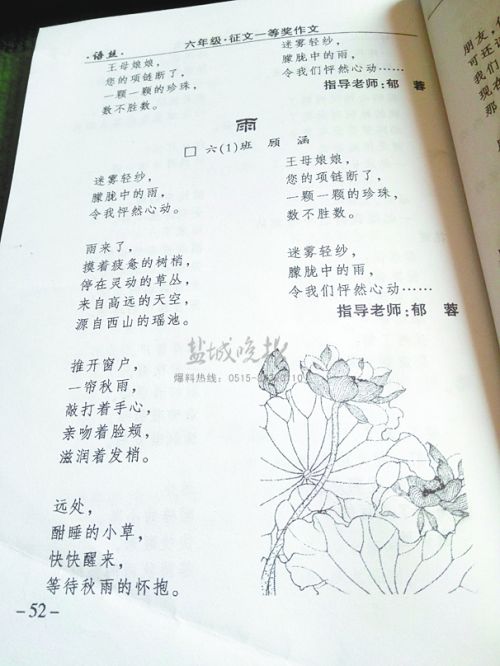 ·语丝·
六年级·征文一等奖作文
王母娘娘，
您的项链断了，
一颗一颗的珍珠，
数不胜数。
迷雾轻纱，
朦胧中的雨，
令我们怦然心动……
指导老师：郁 蓉
雨
□ 六(1)班 顾 涵
迷雾轻纱，
朦胧中的雨，
令我怦然心动。
雨来了，
摸着疲惫的树梢，
停在灵动的草丛，
来自高远的天空，
源自西山的瑶池。
推开窗户，
一帘秋雨，
敲打着手心，
亲吻着脸颊，
滋润着发梢。
远处，
酣睡的小草，
快快醒来，
等待秋雨的怀抱。
王母娘娘，
您的项链断了，
一颗一颗的珍珠，
数不胜数。
迷雾轻纱，
朦胧中的雨，
令我们怦然心动……
指导老师：郁 蓉
盐城晚报
爆料热线：0515-
-52-
朋友，
可还
现
那